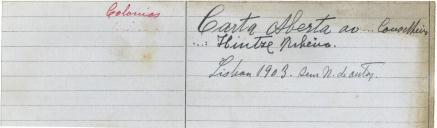 Colonias
Carta Aberta ao ... Conselheiro
...: Hintze Ribeiro.
Lisboa 1903. sem n. de autor.